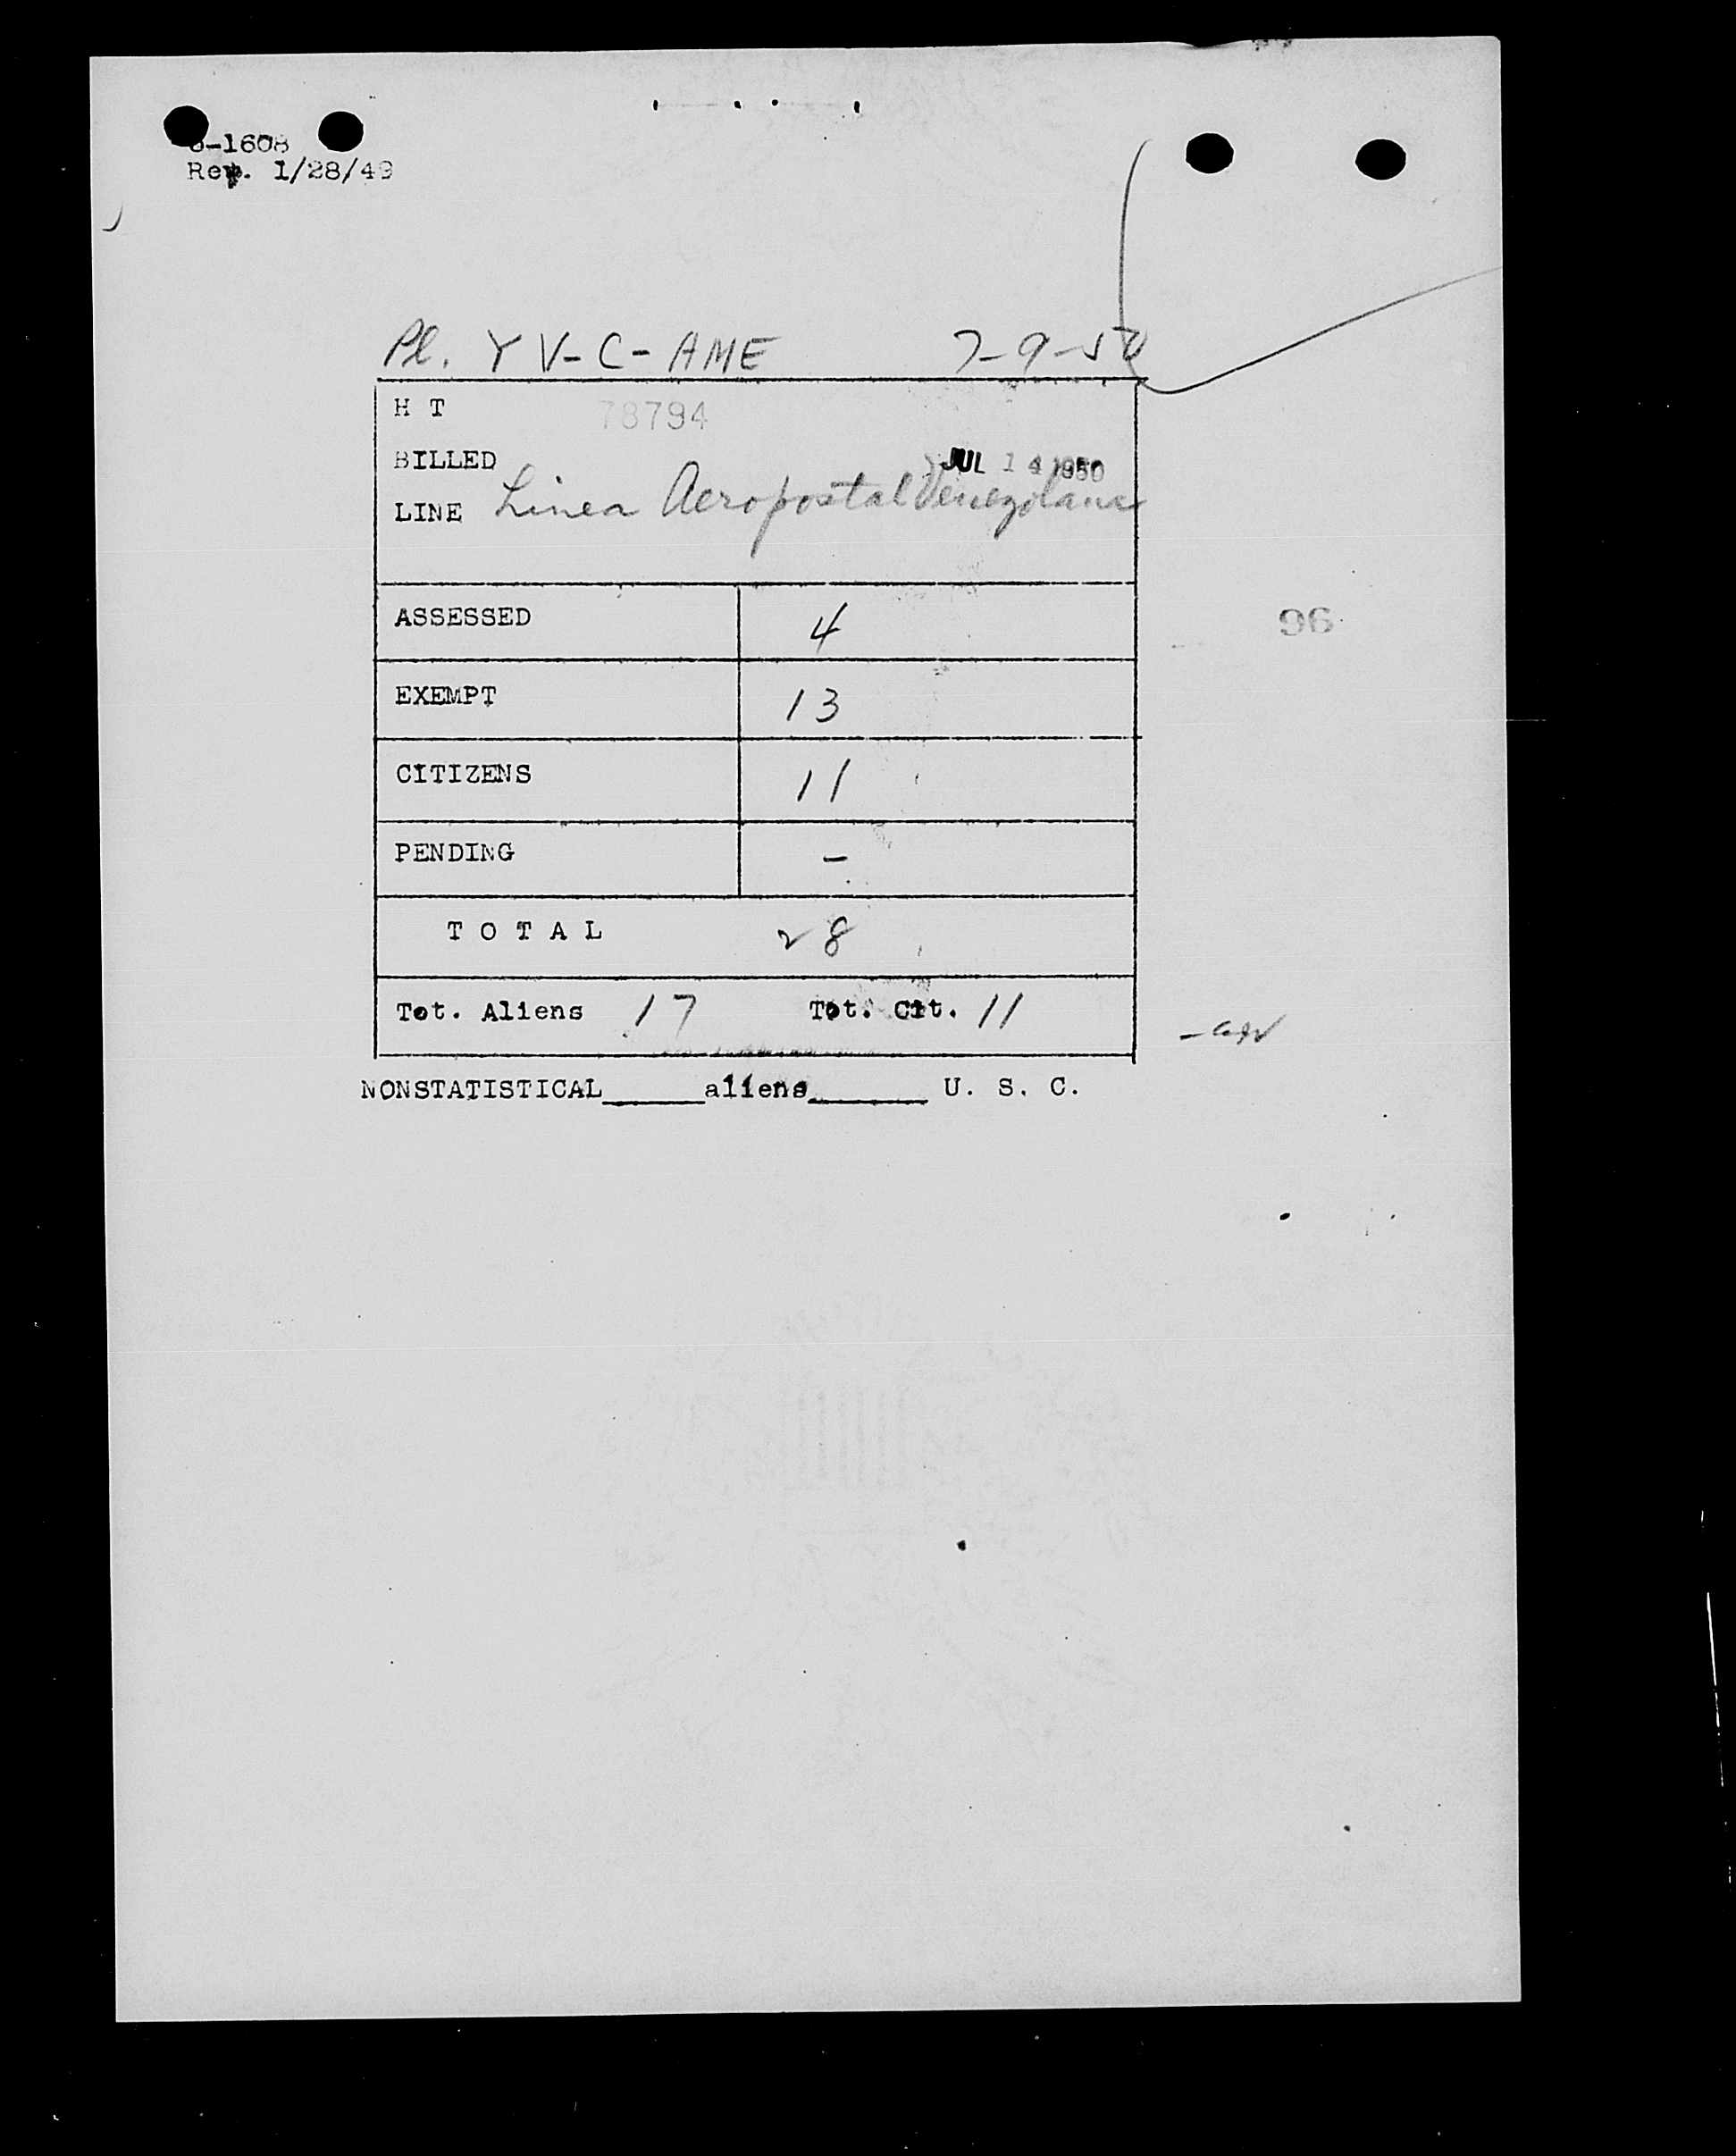 -1608
Rev. 1/28/49
Pl. YV-C-AME 7-9-50
H T 78794
BILLED JUL 14 1950
LINE Linea Aeropostal Venezolana
ASSESSED 4
96
EXEMPT 13
CITIZENS 11
PENDING -
T O T A L 28
Tot. Aliens 17 Tot. Cit. 11
NONSTATISTICAL______aliens_______ U. S. C.